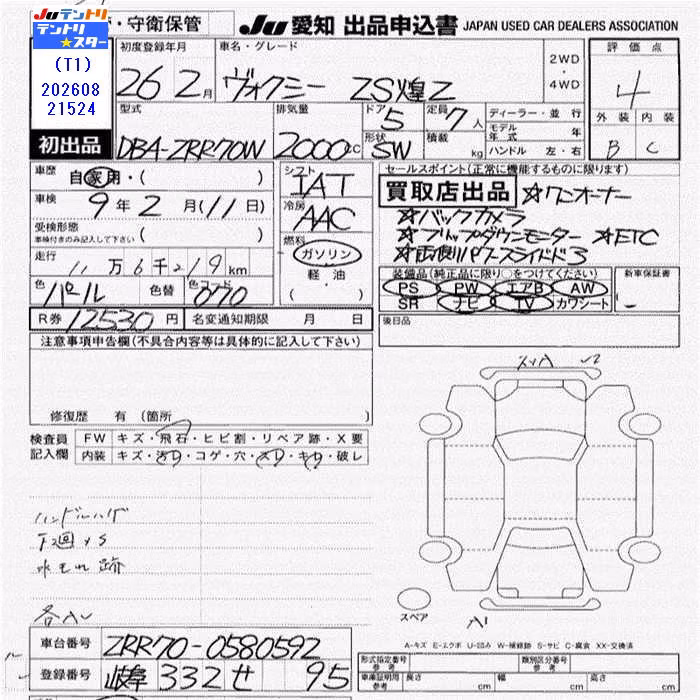 Juテントリ
テントリ★スター
(T1)
202608
21524
・守衛保管
Ju 愛知 出品申込書 JAPAN USED CAR DEALERS ASSOCIATION
初出品
初度登録年月
26 2月
車名・グレード
ヴォクシー ZS煌Z
2WD
・
4WD
評価点
4
外装 内装
B C
型式
DBA-ZRR70W
排気量
2000cc
ドア
5
形状
SW
定員
7人
積載
kg
ディーラー・並行
モデル年式 年
ハンドル 左・右
車歴
自家用・( )
車検
9年2月(11日)
受検形態
車検付きのみ記入して下さい ( )
走行
11万6千219km
色
パール
色替
色コード
070
シフト
IAT
冷房
AAC
燃料
ガソリン
軽油
・( )
R券 12530円
名変通知期限 月 日
セールスポイント(正常に機能するものに限ります)
買取店出品 ☆ワンオーナー
☆バックカメラ
☆フリップダウンモニター ☆ETC
☆両側パワースライドドア
装備品(純正品に限り○をつけてください)
PS PW エアB AW
SR ナビ TV カワシート
新車保証書
後日品
注意事項申告欄(不具合内容等は具体的に記入して下さい)
修復歴 有 (箇所
検査員記入欄
FW キズ・飛石・ヒビ割・リペア跡・X要
内装 キズ・汚レ・コゲ・穴・スレ・キレ・破レ
ハンドルハゲ
下廻りS
水モレ跡
各AU
スペア
A1
A-キズ E-エクボ U-凹み W-補修跡 S-サビ C-腐食 XX-交換済
車台番号 ZRR70-0580592
登録番号 岐阜 332 せ 95
形式指定番号
参考
類別区分番号
参考
車庫証明用
参考
長さ cm
幅 cm
高さ cm